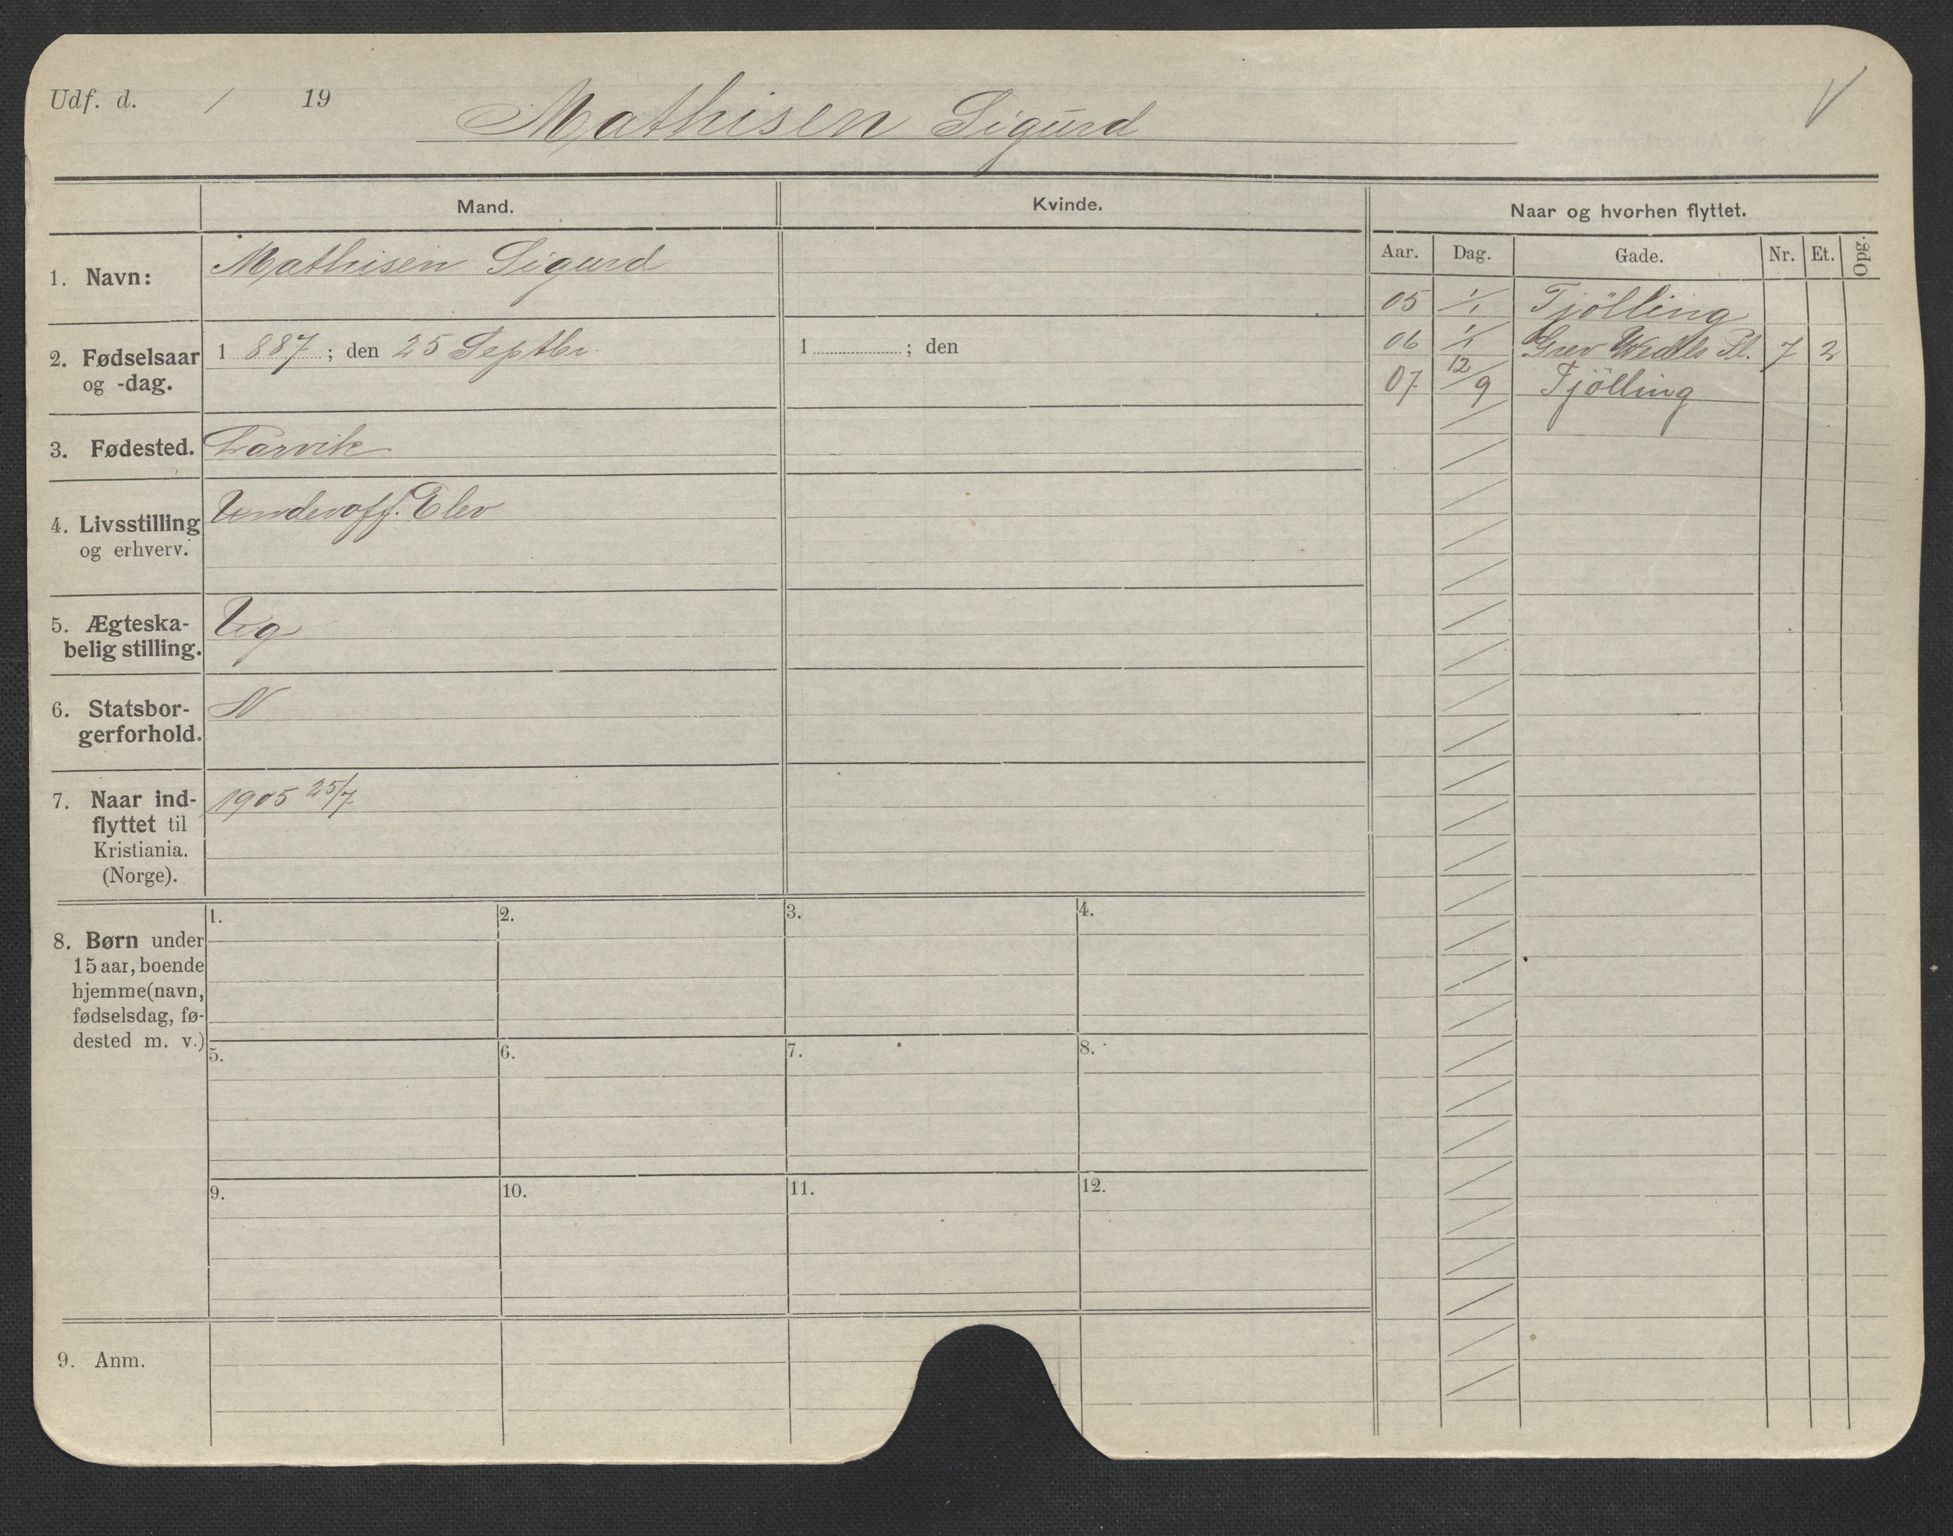 Udf. d. / 19
Mathisen Sigurd
V
Mand.
Kvinde.
Naar og hvorhen flyttet.
Aar. Dag. Gade. Nr. Et. Opg.
1. Navn: Mathisen Sigurd
2. Fødselsaar og -dag. 1 887 ; den 25 Septbr.
1 ; den
3. Fødested. Larvik
4. Livsstilling og erhverv. Underoff. Elev
5. Ægteska-
belig stilling. Ug
6. Statsbor-
gerforhold. N
7. Naar ind-
flyttet til
Kristiania.
(Norge).
1905 25/7
05 1/1 Tjölling
06 1/1 Grev Wedels Pl. 7 2
07 12/9 Tjölling
8. Børn under
15 aar, boende
hjemme (navn,
fødselsdag, fø-
dested m. v.)
1. 2. 3. 4.
5. 6. 7. 8.
9. 10. 11. 12.
9. Anm.